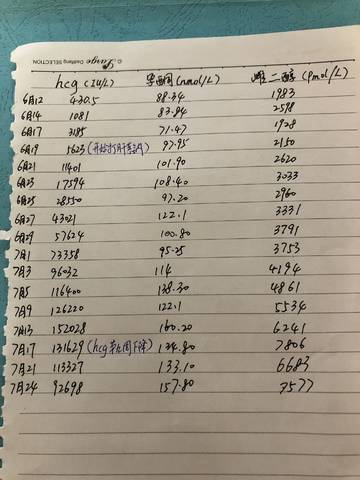 © Large Dashing SELECTION
hcg (IU/L) 孕酮(nmol/L) 雌二醇(Pmol/L)
6月12 430.5 88.34 1983
6月14 1081 83.84 2598
6月17 3185 71.47 1928
6月19 5623 (开始打肝素) 97.95 2150
6月21 11401 101.90 2620
6月23 17594 108.40 3033
6月25 28550 97.20 2960
6月27 43021 122.1 3331
6月29 57624 100.80 3791
7月1 73358 95.25 3753
7月3 96032 114 4194
7月5 116400 138.30 4861
7月9 126220 122.1 5534
7月13 152028 160.20 6241
7月17 131629 (hcg 下降) 134.80 7806
7月21 113327 133.10 6683
7月24 92698 157.80 7577